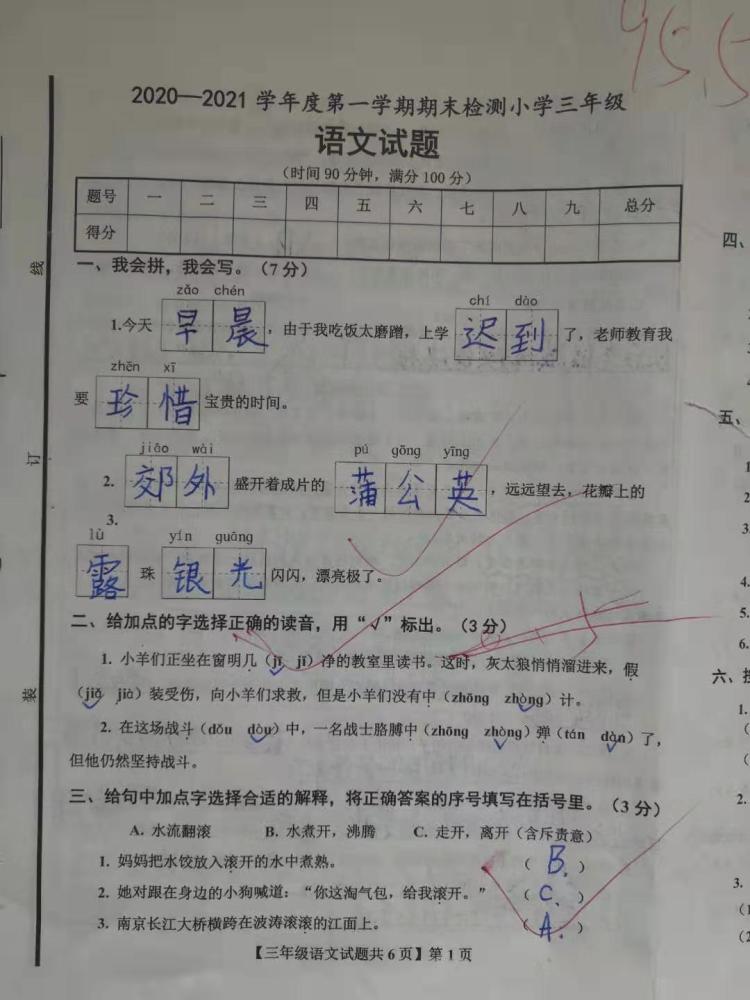 95.5
2020—2021学年度第一学期期末检测小学三年级
语文试题
（时间90分钟，满分100分）
题号 一 二 三 四 五 六 七 八 九 总分
得分
一、我会拼，我会写。（7分）
zǎo chén chí dào
1.今天 早晨，由于我吃饭太磨蹭，上学 迟到 了，老师教育我
zhēn xī
要 珍惜 宝贵的时间。
jiāo wài pú gōng yīng
2. 郊外 盛开着成片的 蒲公英，远远望去，花瓣上的
3.
lù yín guāng
露 珠 银光 闪闪，漂亮极了。
二、给加点的字选择正确的读音，用“√”标出。（3分）
1. 小羊们正坐在窗明几（jī jǐ）净的教室里读书。这时，灰太狼悄悄溜进来，假
（jiǎ jià）装受伤，向小羊们求救，但是小羊们没有中（zhōng zhòng）计。
2. 在这场战斗（dǒu dòu）中，一名战士胳膊中（zhōng zhòng）弹（tán dàn）了，
但他仍然坚持战斗。
三、给句中加点字选择合适的解释，将正确答案的序号填写在括号里。（3分）
A. 水流翻滚 B. 水煮开，沸腾 C. 走开，离开（含斥责意）
1. 妈妈把水饺放入滚开的水中煮熟。 （ B. ）
2. 她对跟在身边的小狗喊道：“你这淘气包，给我滚开。” （ C、 ）
3. 南京长江大桥横跨在波涛滚滚的江面上。 （ A. ）
【三年级语文试题共6页】第1页
线
订
装
四、
五、
1
2
3.
4.
5.
6.
六、
1.
（
（
2.
3.
(1
(2